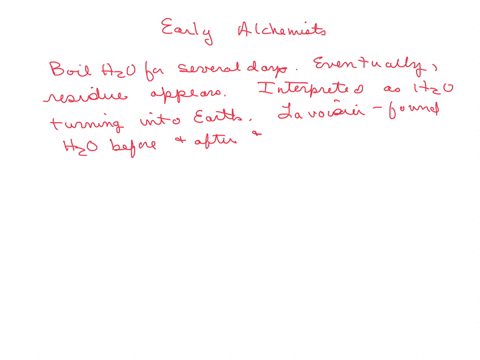 Early Alchemists
Boil H₂O for several days. Eventually,
residue appears. Interpreted as H₂O
turning into Earth. Lavoisier - found
H₂O before + after &